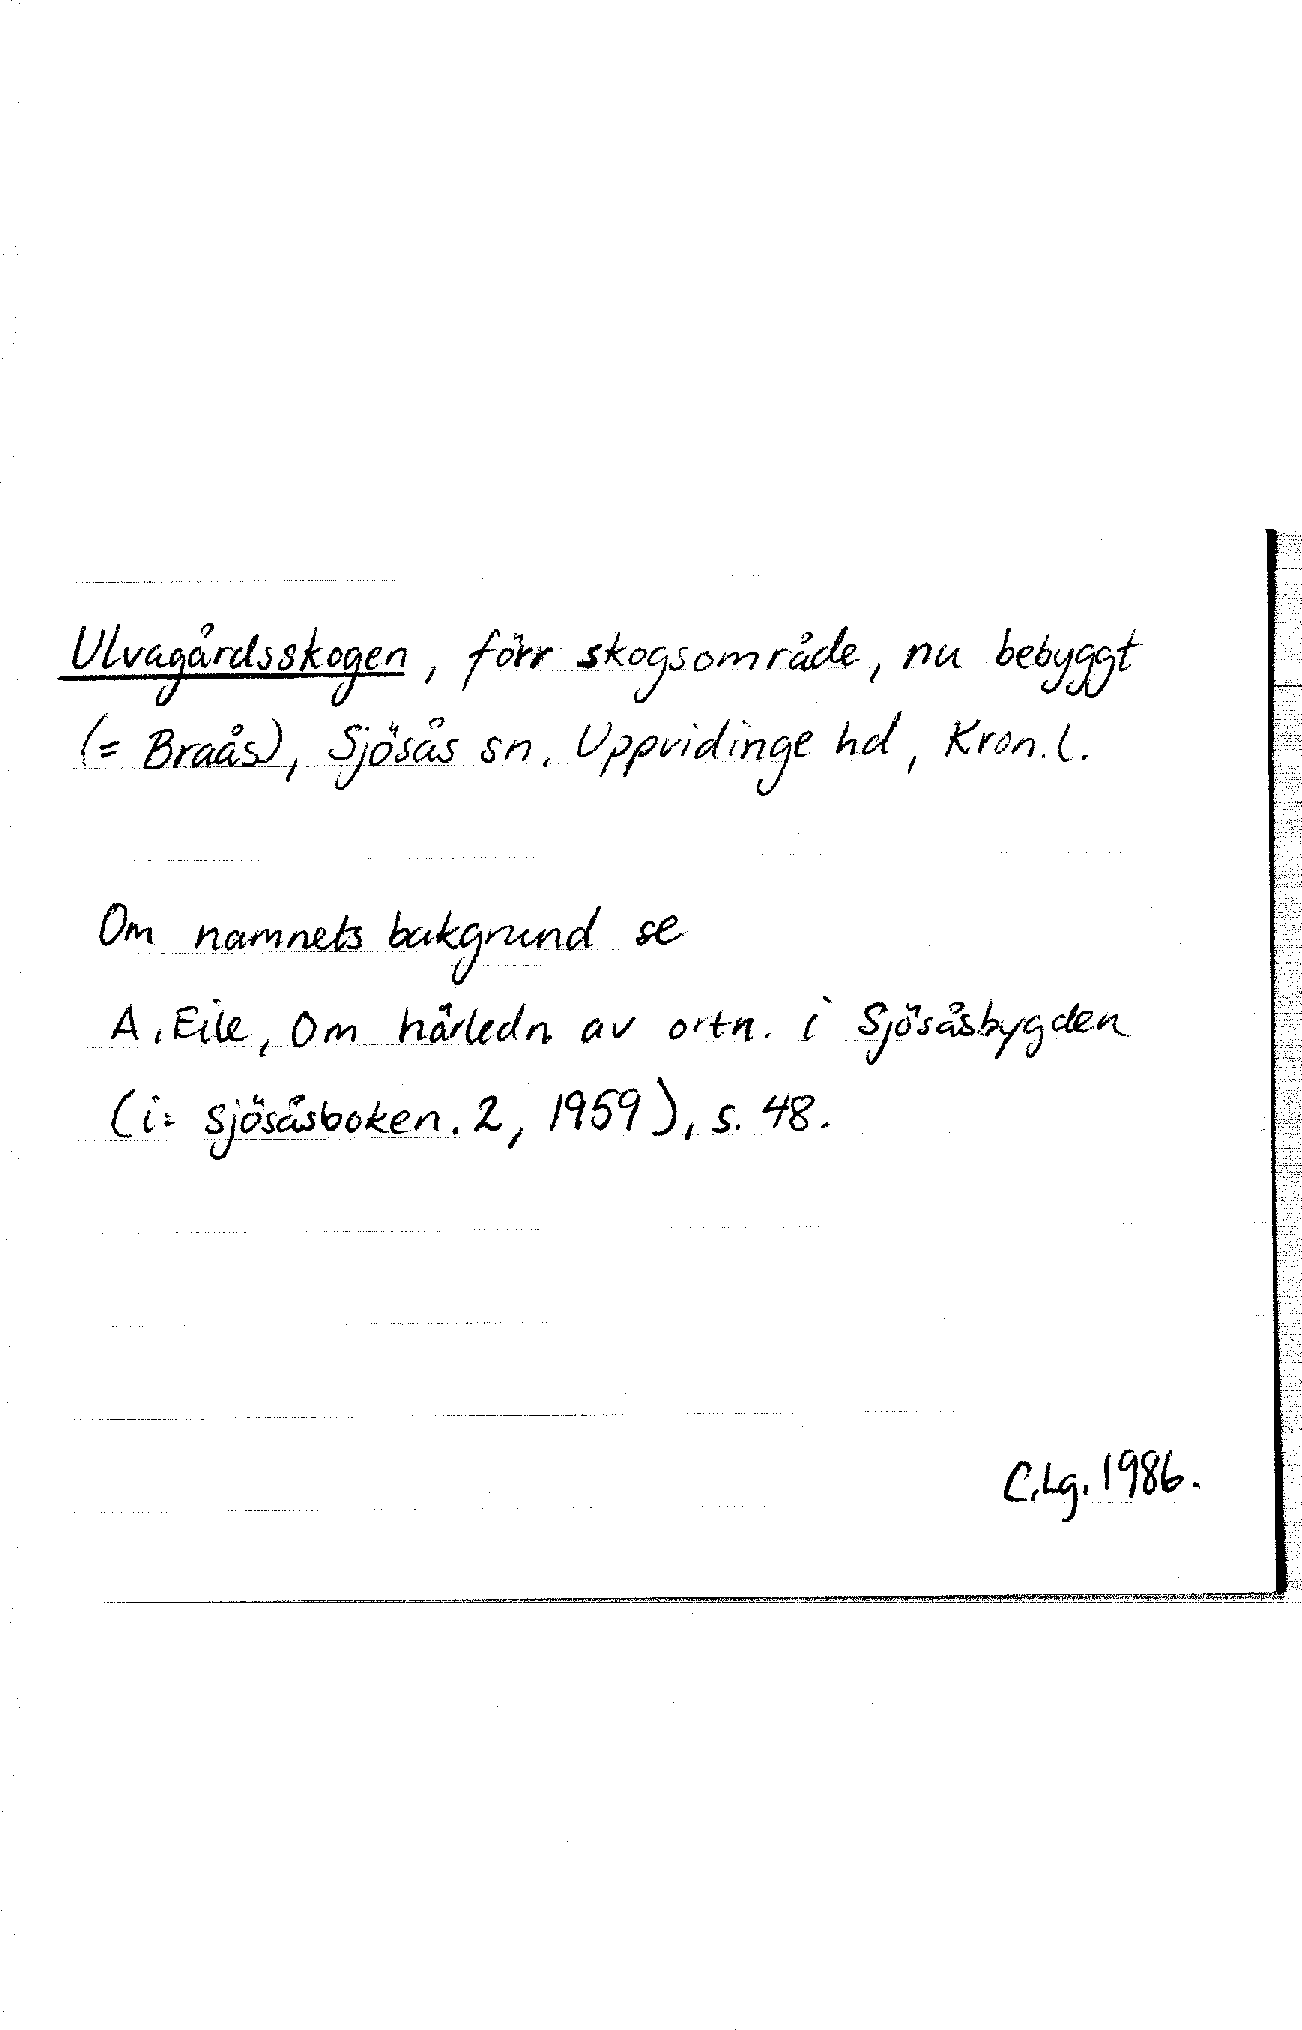 Ulvagårdsskogen, förr skogsområde, nu bebyggt
(= Braås), Sjösås sn, Uppvidinge hd, Kron. l.
Om namnets bakgrund se
A. Eile, Om härledn av ortn. i Sjösåsbygden
(i: Sjösåsboken. 2, 1959), s. 48.
C.Lg. 1986.